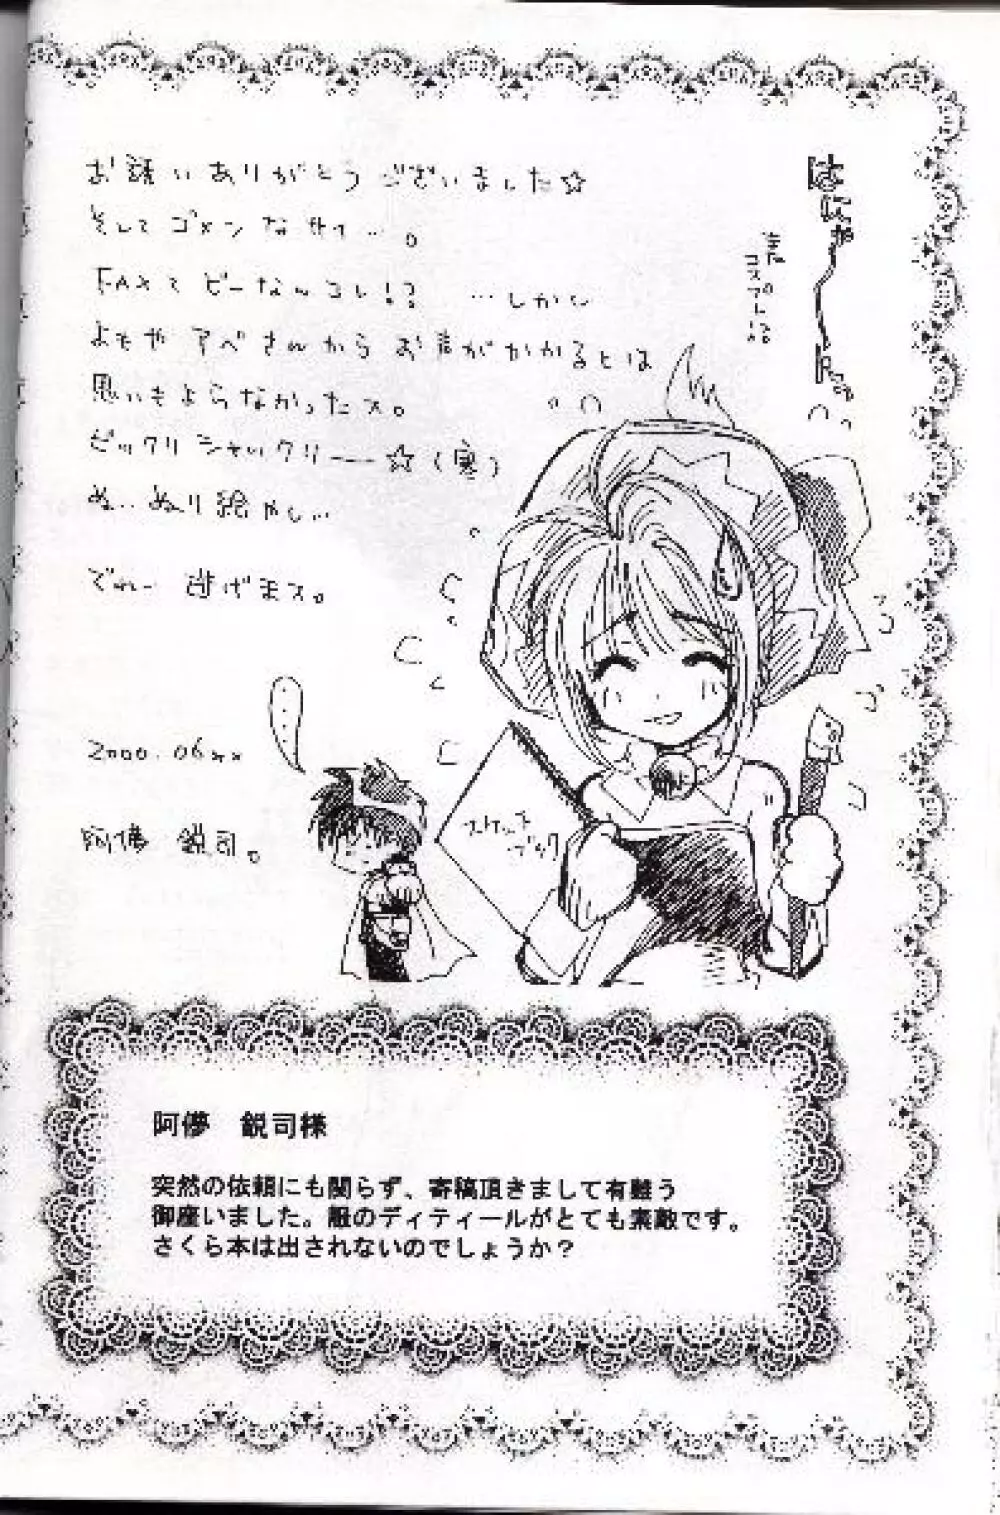 お誘いありがとうございました☆
そしてゴメンなサイ…。
FAXてどーなんコレ!? …しかし
よもやアベさんからお声がかかるとは
思いもよらなかったス。
ビックリシャックリ——☆(寒)
ぬ…ぬり絵やし…
でわー 逃げまス。
2000.06
阿儚 鋭司。
はにゃーん
スケッチ
ブック
阿儚 鋭司様
突然の依頼にも関らず、寄稿頂きまして有難う
御座いました。服のディティールがとても素敵です。
さくら本は出されないのでしょうか？